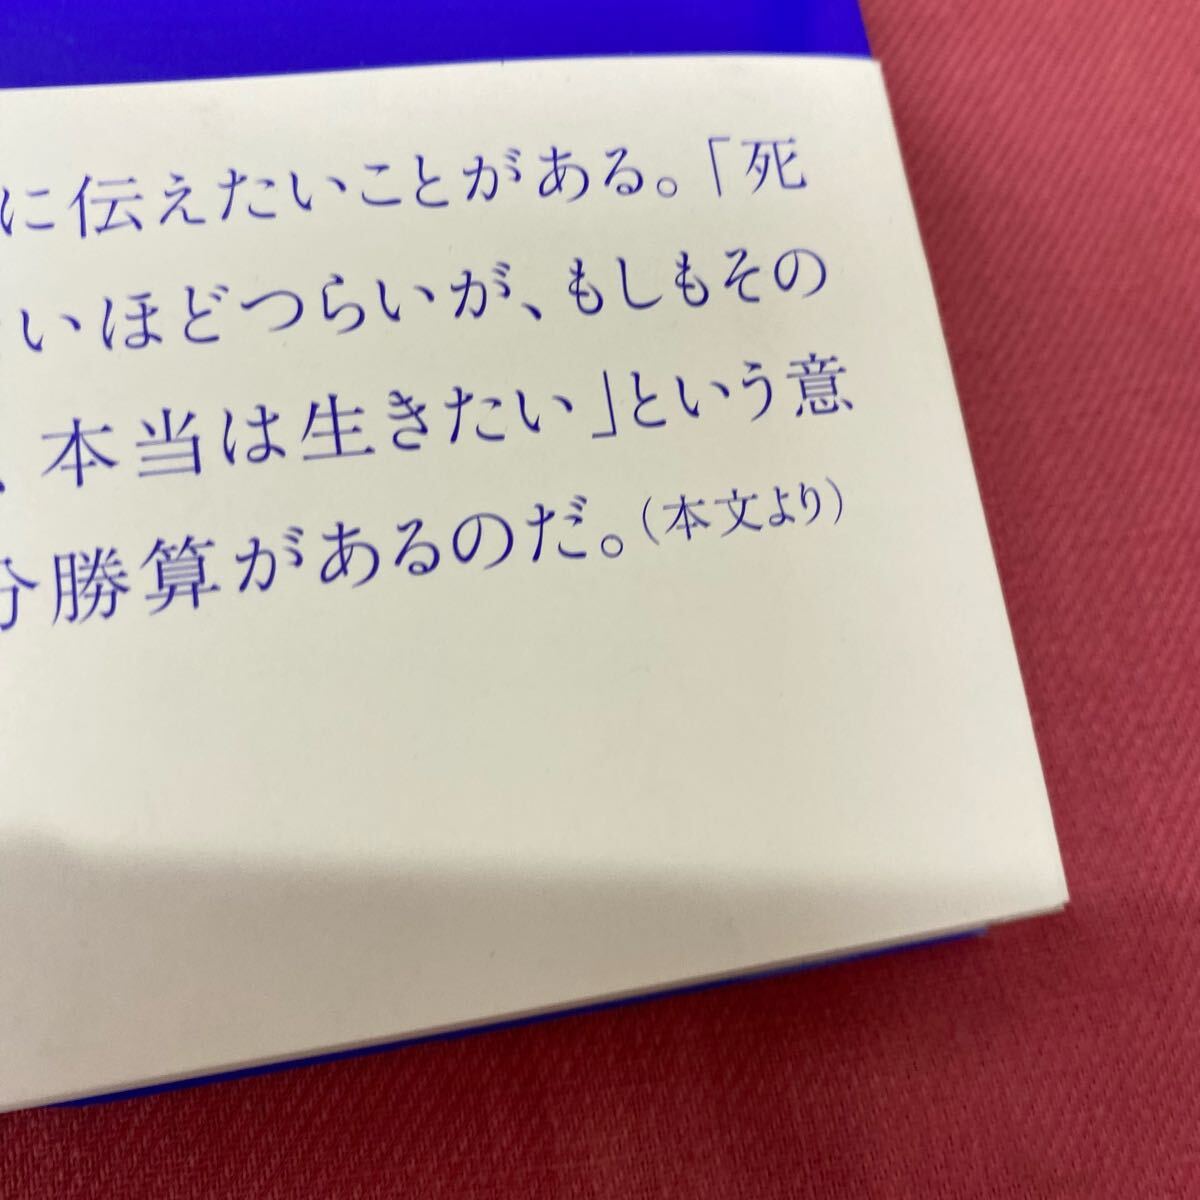 に伝えたいことがある。「死
いほどつらいが、もしもその
、本当は生きたい」という意
分勝算があるのだ。（本文より）